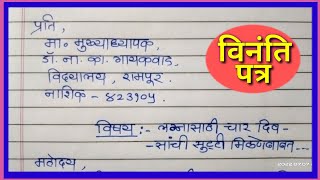 प्रति,
मा० मुख्याध्यापक,
डॉ. ना. का. गायकवाड
विद्यालय, रामपूर.
नाशिक - ४२३१०५
विनंति
पत्र
विषय :- लग्नासाठी चार दिव-
-सांची सुट्टी मिळणेबाबत...
महोदय,